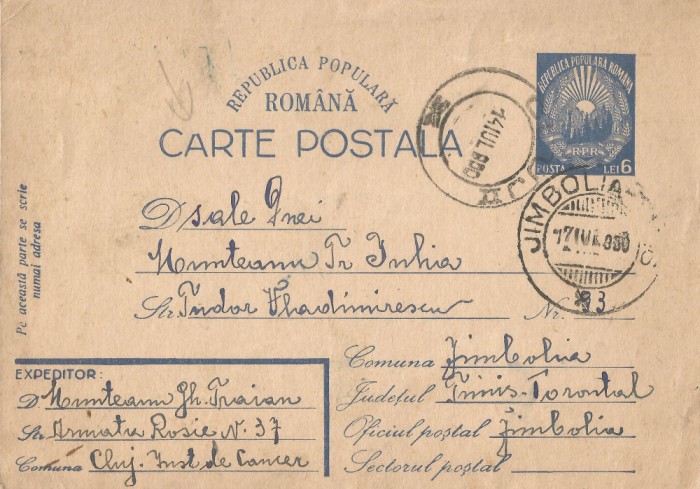 REPUBLICA POPULARĂ
ROMÂNĂ
CARTE POSTALA
REPUBLICA POPULARA ROMANA
RPR
POSTA LEI 6
14 IUL 950
JIMBOLIA
17 IUL 950
Pe această parte se scrie
numai adresa
D sale Dnei
Munteanu Tr Iulia
Str. Tudor Vladimirescu Nr. 93
EXPEDITOR:
D. Munteanu Gh. Traian
Str. Armata Rosie N. 37
Comuna Cluj. Inst de Cancer
Comuna Jimbolia
Judeţul Timis-Torontal
Oficiul poştal Jimbolia
Sectorul poştal